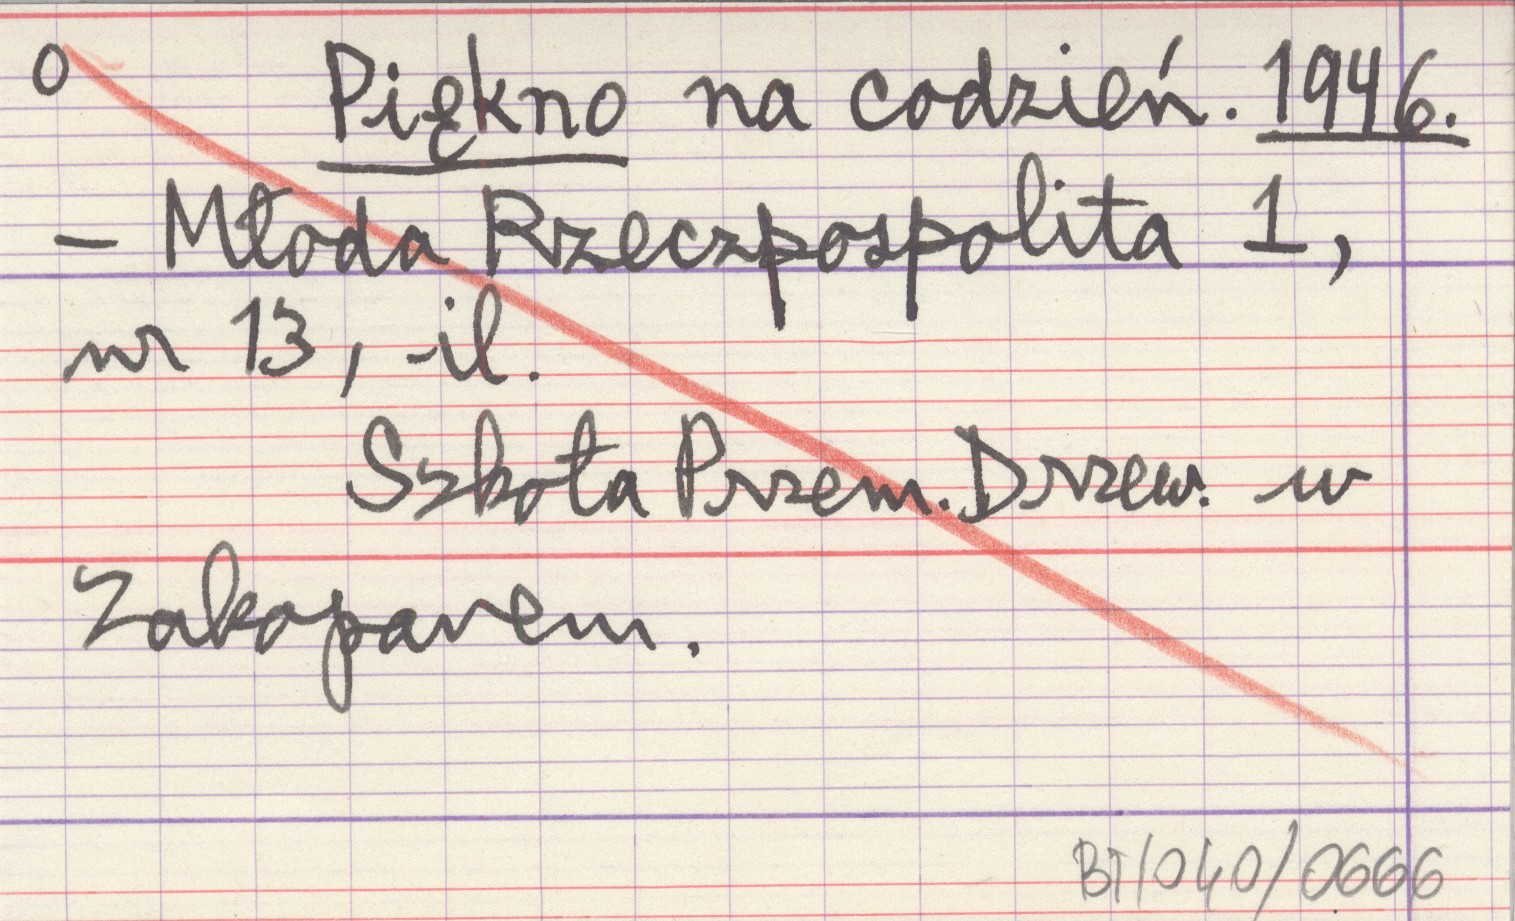 0 Piękno na codzień. 1946.
- Młoda Rzeczpospolita 1,
nr 13, il.
Szkoła Przem. Drzew. w
Zakopanem.
BT/040/0666